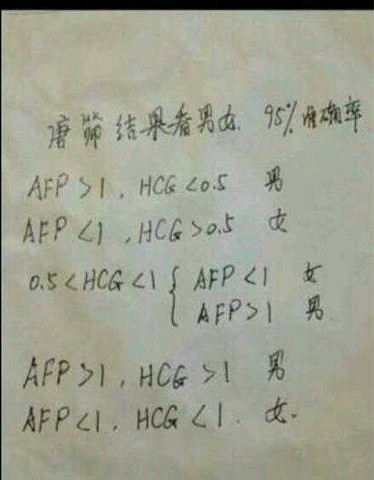 唐筛结果看男女. 95%准确率
AFP>1, HCG<0.5 男
AFP<1, HCG>0.5 女
0.5<HCG<1 { AFP<1 女
AFP>1 男
AFP>1, HCG>1 男
AFP<1, HCG<1. 女.